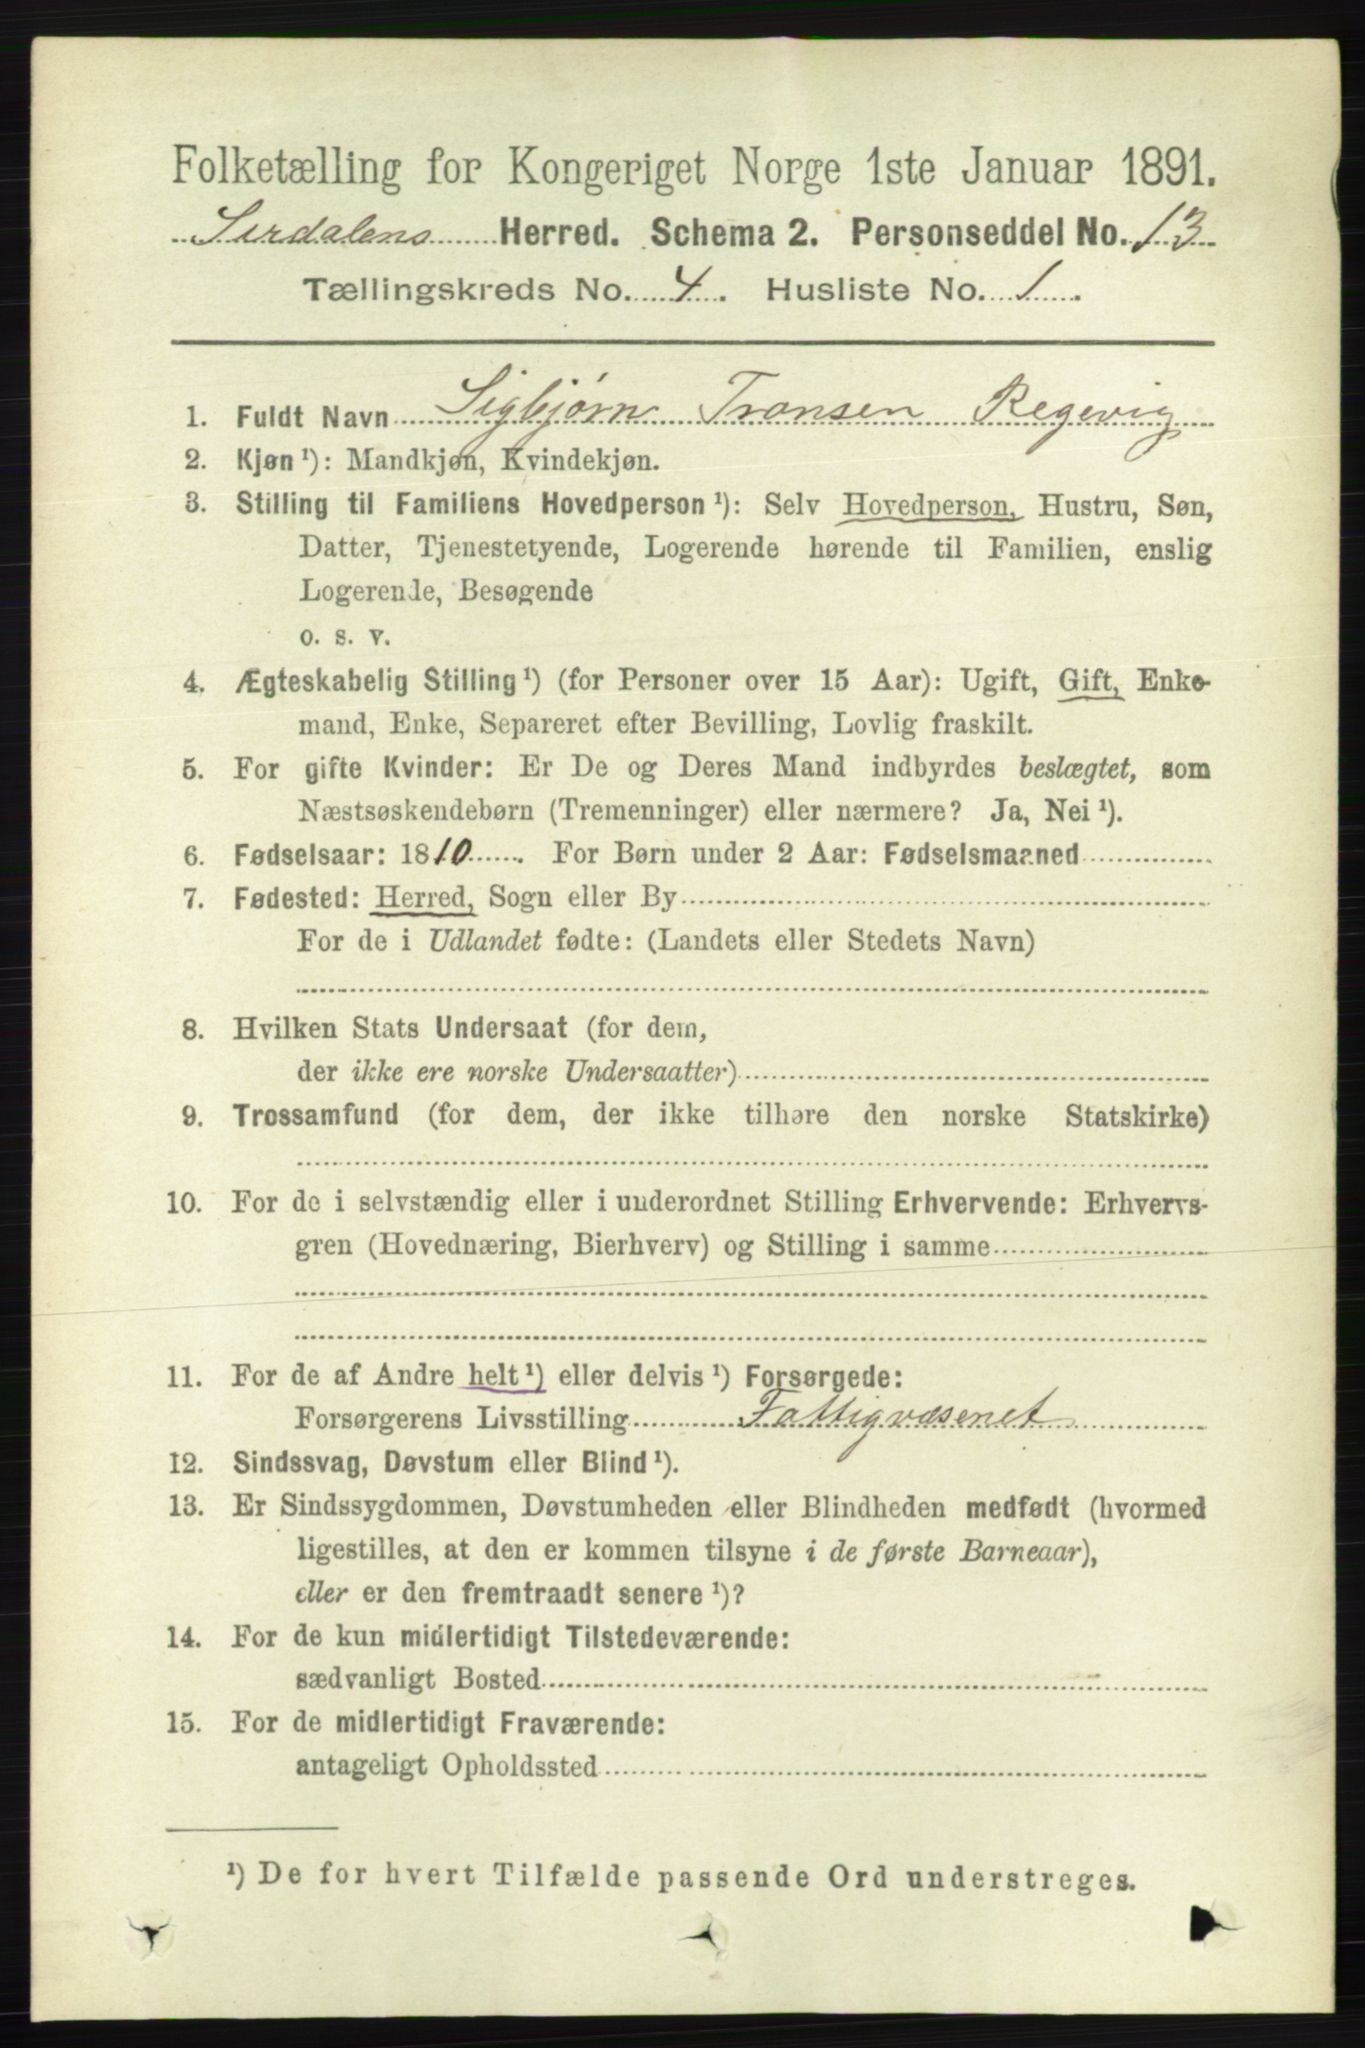 Folketælling for Kongeriget Norge 1ste Januar 1891.
Sirdalens Herred. Schema 2. Personseddel No. 13
Tællingskreds No. 4. Husliste No. 1.
1. Fuldt Navn Sigbjørn Tronsen Regevig
2. Kjøn ¹): Mandkjøn, Kvindekjøn.
3. Stilling til Familiens Hovedperson ¹): Selv Hovedperson, Hustru, Søn,
Datter, Tjenestetyende, Logerende hørende til Familien, enslig
Logerende, Besøgende
o. s. v.
4. Ægteskabelig Stilling ¹) (for Personer over 15 Aar): Ugift, Gift, Enke-
mand, Enke, Separeret efter Bevilling, Lovlig fraskilt.
5. For gifte Kvinder: Er De og Deres Mand indbyrdes beslægtet, som
Næstsøskendebørn (Tremenninger) eller nærmere? Ja, Nei ¹).
6. Fødselsaar: 1810. For Børn under 2 Aar: Fødselsmaaned
7. Fødested: Herred, Sogn eller By
For de i Udlandet fødte: (Landets eller Stedets Navn)
8. Hvilken Stats Undersaat (for dem,
der ikke ere norske Undersaatter)
9. Trossamfund (for dem, der ikke tilhøre den norske Statskirke)
10. For de i selvstændig eller i underordnet Stilling Erhvervende: Erhvervs-
gren (Hovednæring, Bierhverv) og Stilling i samme
11. For de af Andre helt ¹) eller delvis ¹) Forsørgede:
Forsørgerens Livsstilling Fattigvæsenet
12. Sindssvag, Døvstum eller Blind ¹).
13. Er Sindssygdommen, Døvstumheden eller Blindheden medfødt (hvormed
ligestilles, at den er kommen tilsyne i de første Barneaar),
eller er den fremtraadt senere ¹)?
14. For de kun midlertidigt Tilstedeværende:
sædvanligt Bosted
15. For de midlertidigt Fraværende:
antageligt Opholdssted
¹) De for hvert Tilfælde passende Ord understreges.